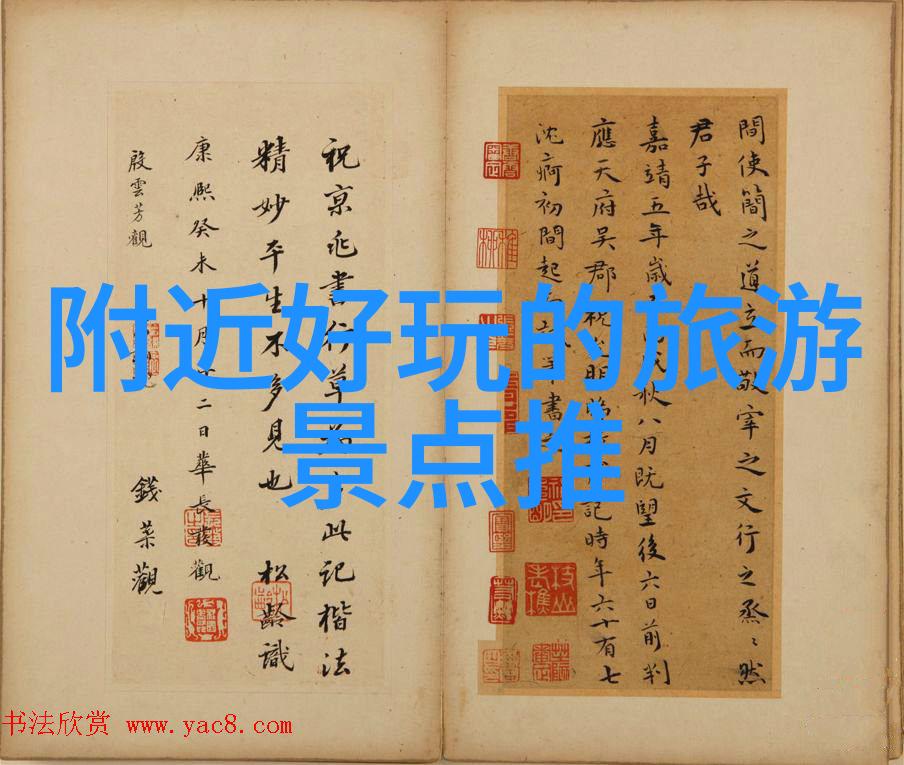 附近好玩的旅游
景点推
間使簡之道立而敬宰之文行之烝〻然
君子哉
嘉靖五年歲秋八月既望後六日前判
應天府吳郡祝明記時年六十有七
沈痾初間起書
祝京兆書行草此記楷法
精妙平生不多見也 松齡識
康熙癸未十月二日華長發觀
殷雲芳觀
錢觀
书法欣赏 www.yac8.com